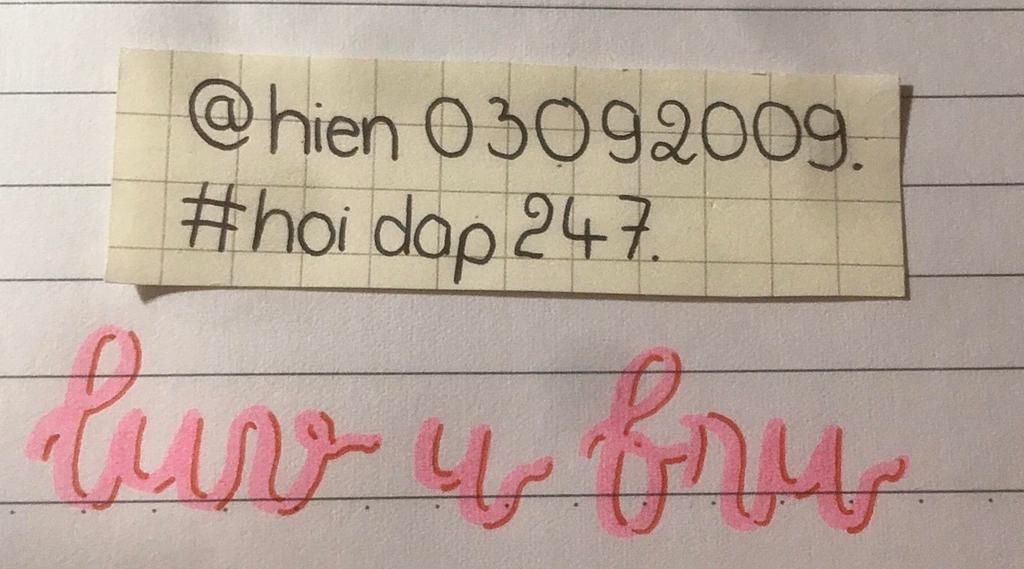 @hien 03092009.
#hoi dap 247.
luv u bru